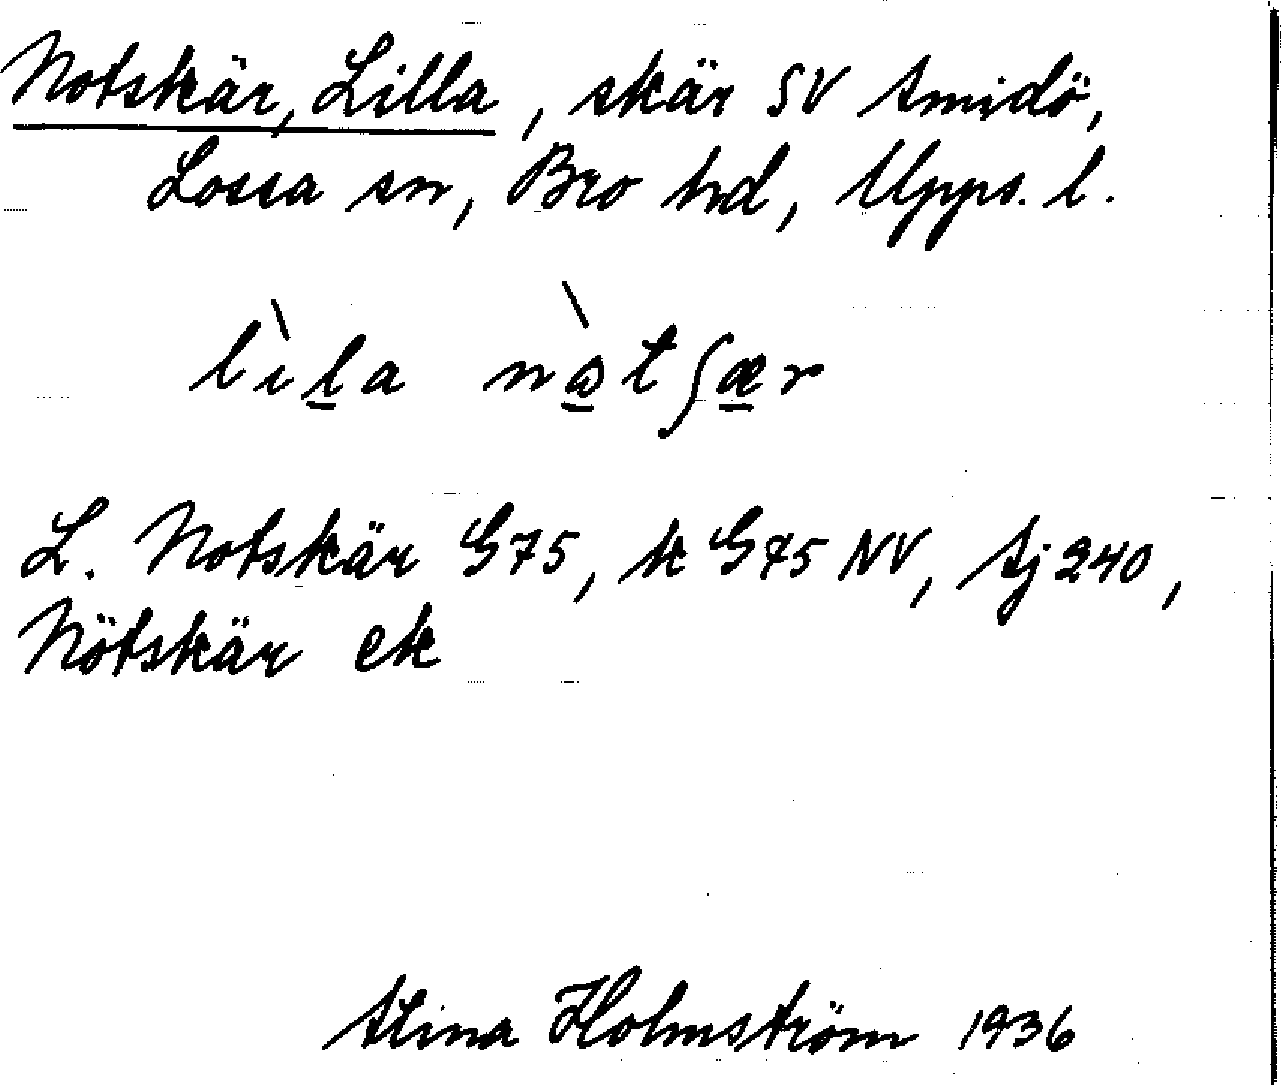 Notskär, Lilla, skär SV Smidö,
Lossa sn, Bro hd, Upps. l.
lìla nòtʃær
L. Notskär G75, k G75 NV, Sj 240,
Nötskär ek
Stina Holmström 1936